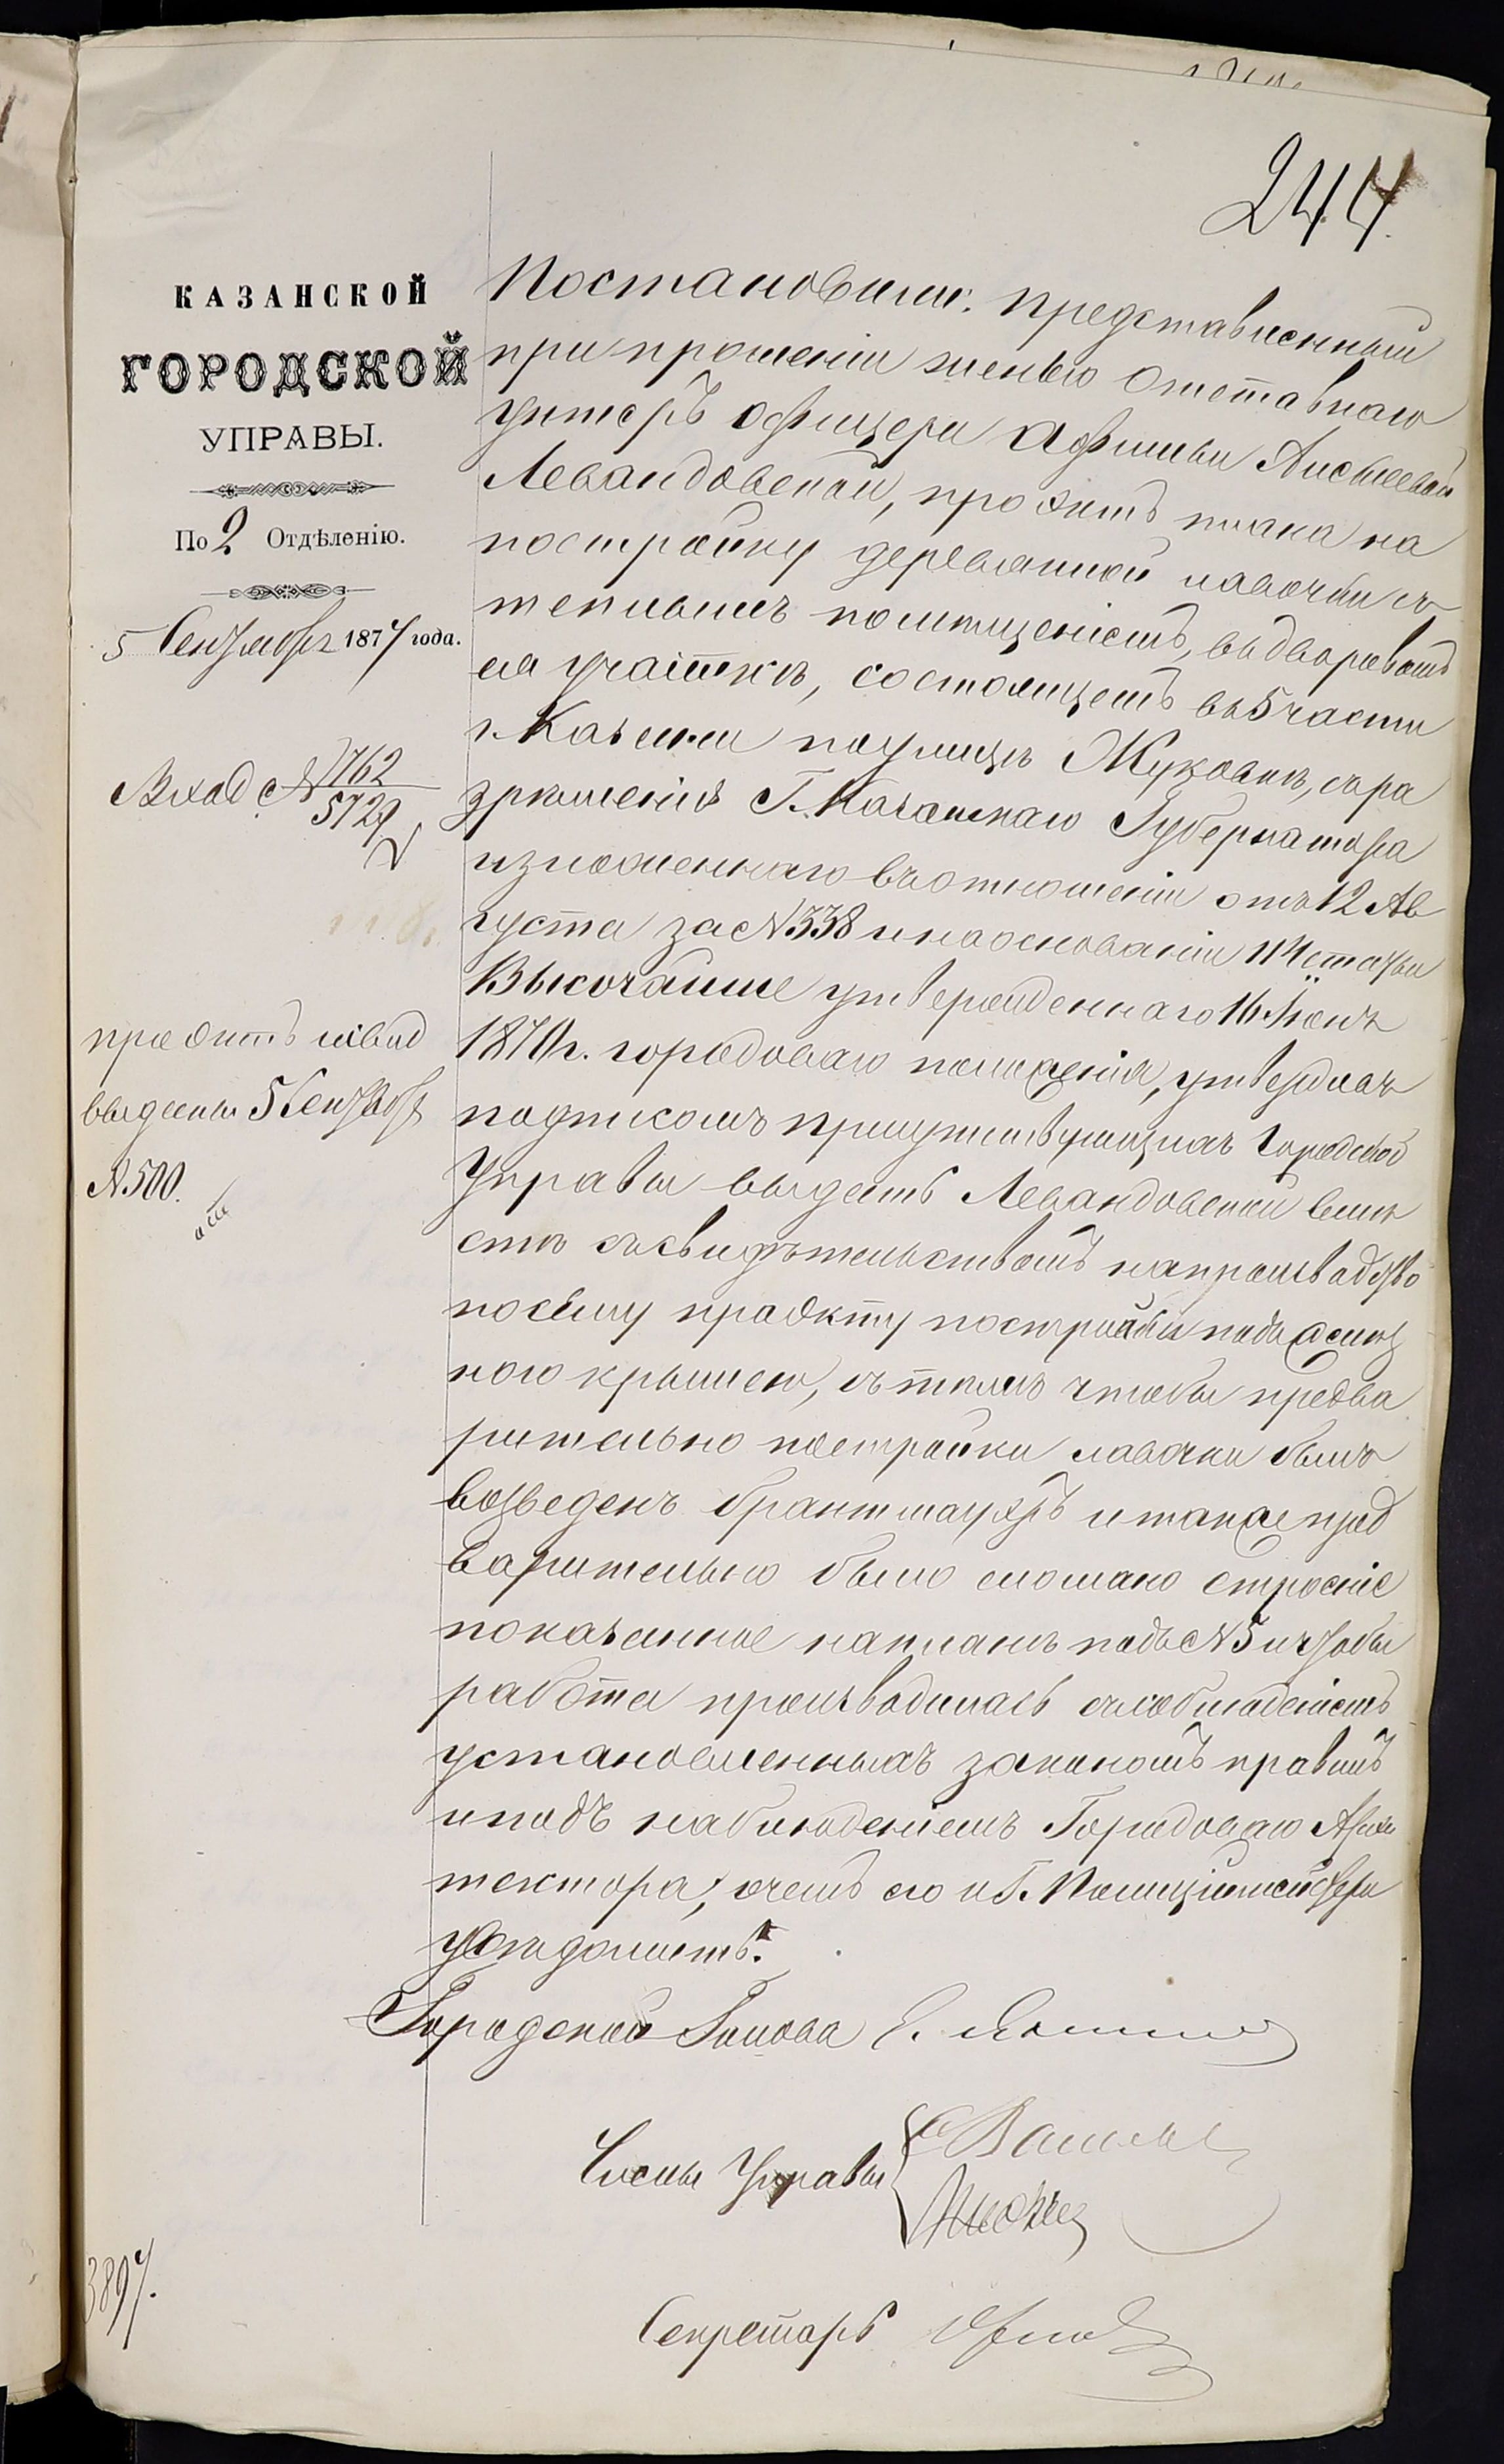 244.
КАЗАНСКОЙ
ГОРОДСКОЙ
УПРАВЫ.
По 2 Отдѣленію.
5 Сентября 1874 года.
Вход № 1762
5729
проэктъ и свид
выданы 5 Сентября
№ 500.
Постановили: представленный
при прошеніи женою отставнаго
унтеръ офицера Афимьи Алексеевой
Левандовской, проэктъ плана на
постройку деревянной лавочки съ
теплымъ помѣщеніемъ, въ дворовомъ
ея участкѣ, состоящемъ въ 5 части
г. Казани по улицѣ Жуковкѣ, съ ра
зрѣшенія Г. Казанскаго Губернатора
изложеннаго въ отношеніи отъ 12 Ав
густа за № 338 и на основаніи 114 статьи
Высочайше утвержденнаго 16 Іюня
1870 г. городоваго положенія, утвердивъ
подписомъ присутствующихъ Городской
Управы выдать Левандовской вмѣ
стѣ съ свидѣтельствомъ на производство
по сему проэкту постройки подъ желѣз
ною крышею, съ тѣмъ чтобы предва
рительно постройки лавочки былъ
возведенъ брантмауэръ и также пред
варительно было сломано строеніе
показанное на планѣ подъ № 5 и чтобы
работа производилась съ соблюденіемъ
установленныхъ закономъ правилъ
и подъ наблюденіемъ Городоваго Архи
тектора, о чемъ его и Г. Полиціймейстера
увѣдомить.
Городской Голова Е.
Члены Управы
Секретарь
3897.